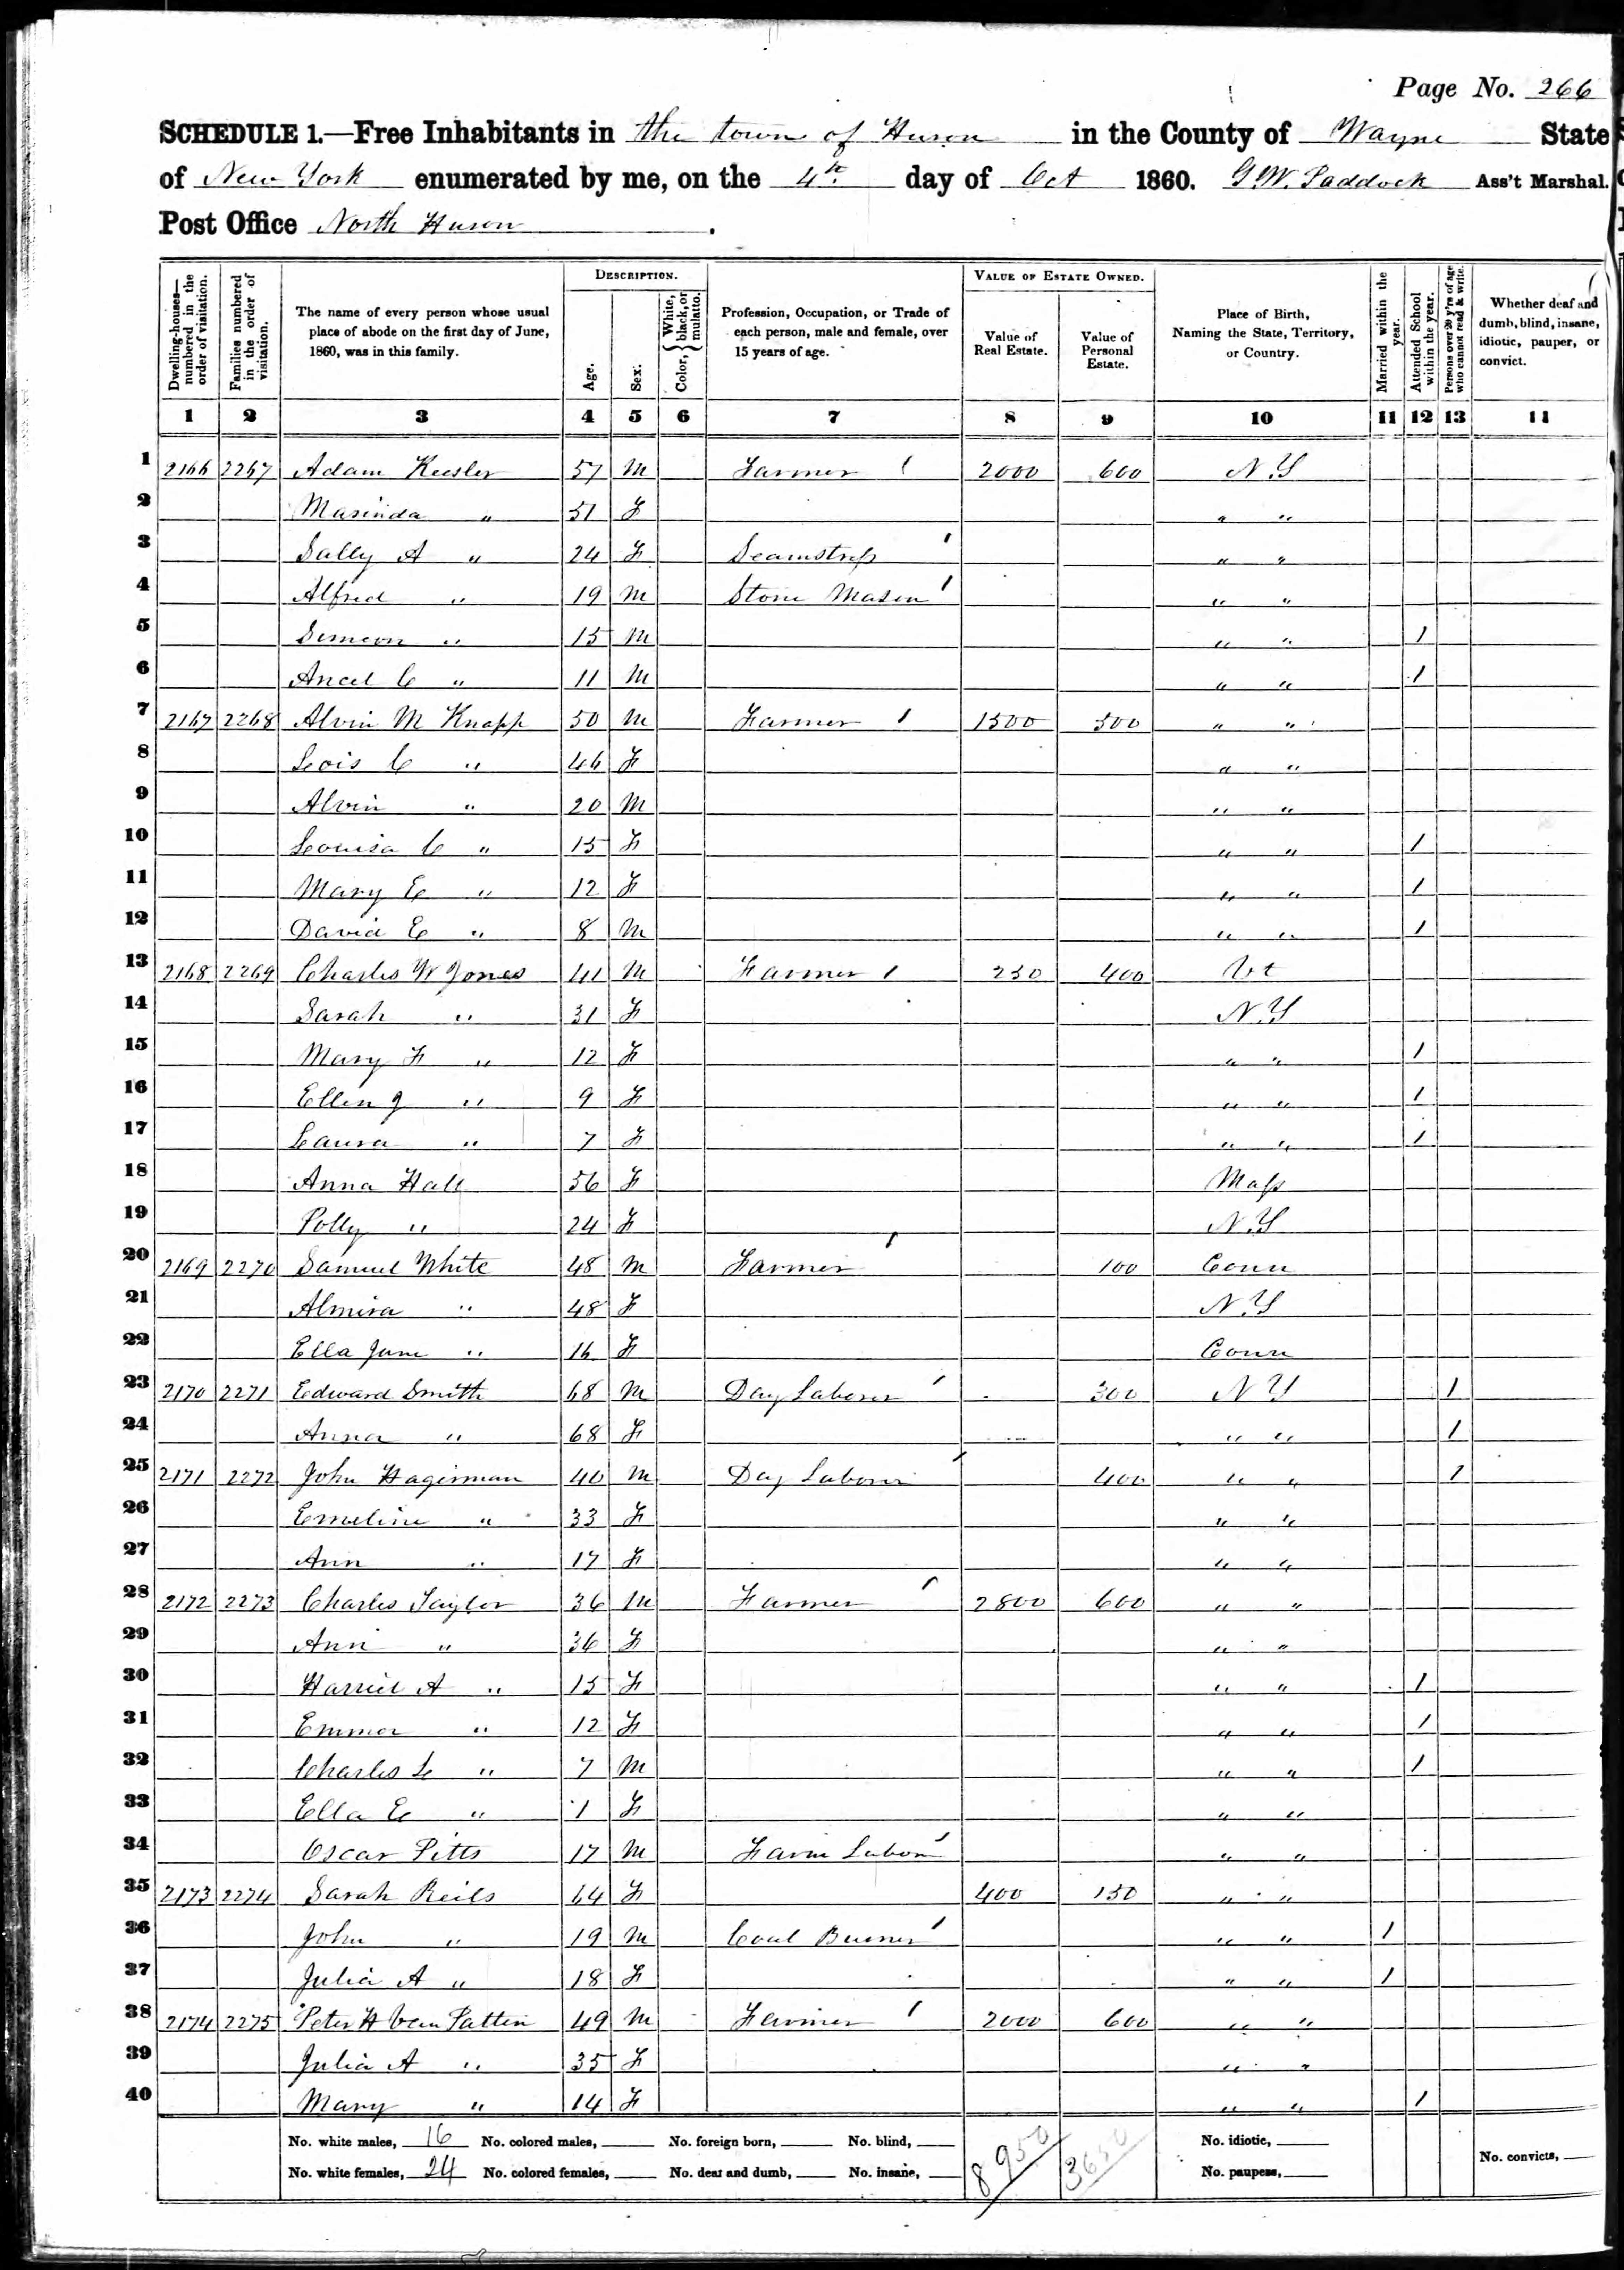 Page No. 266
SCHEDULE 1.—Free Inhabitants in the town of Huron in the County of Wayne State
of New York enumerated by me, on the 4th day of Oct 1860. G W. Paddock Ass't Marshal.
Post Office North Huron.
Dwelling-houses—numbered in the order of visitation.
Families numbered in the order of visitation.
The name of every person whose usual place of abode on the first day of June, 1860, was in this family.
DESCRIPTION.
Age.
Sex.
Color, { White, black, or mulatto.
Profession, Occupation, or Trade of each person, male and female, over 15 years of age.
VALUE OF ESTATE OWNED.
Value of Real Estate.
Value of Personal Estate.
Place of Birth, Naming the State, Territory, or Country.
Married within the year.
Attended School within the year.
Persons over 20 y'rs of age who cannot read & write.
Whether deaf and dumb, blind, insane, idiotic, pauper, or convict.
1 2 3 4 5 6 7 8 9 10 11 12 13 14
1 2166 2267 Adam Keesler 57 M Farmer 2000 600 N.Y
2 Masinda " 51 F " "
3 Sally A " 24 F Seamstress " "
4 Alfred " 19 M Stone Mason " "
5 Simeon " 15 M " " /
6 Ancel C " 11 M " " /
7 2167 2268 Alvin M Knapp 50 M Farmer 1500 500 " "
8 Lois C " 46 F " "
9 Alvin " 20 M " "
10 Louisa C " 15 F " " /
11 Mary E " 12 F " " /
12 David E " 8 M " " /
13 2168 2269 Charles W Jones 41 M Farmer 250 400 Vt
14 Sarah " 31 F N.Y
15 Mary F " 12 F " " /
16 Ellen J " 9 F " " /
17 Laura " 7 F " " /
18 Anna Hall 56 F Mass
19 Polly " 24 F N.Y
20 2169 2270 Samuel White 48 M Farmer 100 Conn
21 Almira " 48 F N.Y
22 Ella Jane " 16 F Conn
23 2170 2271 Edward Smith 68 M Day Laborer 300 N Y /
24 Anna " 68 F " " /
25 2171 2272 John Hagerman 40 M Day Laborer 400 " " /
26 Emeline " 33 F " "
27 Ann " 17 F " "
28 2172 2273 Charles Taylor 36 M Farmer 2800 600 " "
29 Ann " 36 F " "
30 Harriet A " 15 F " " /
31 Emma " 12 F " " /
32 Charles L " 7 M " " /
33 Ella E " 1 F " "
34 Oscar Pitts 17 M Farm Labor " "
35 2173 2274 Sarah Reils 64 F 400 150 " "
36 John " 19 M Coal Burner " " /
37 Julia A " 18 F " " /
38 2174 2275 Peter H Van Patten 49 M Farmer 2000 600 " "
39 Julia A " 35 F " "
40 Mary " 14 F " " /
No. white males, 16 No. colored males, No. foreign born, No. blind, 8950 3650 No. idiotic,
No. white females, 24 No. colored females, No. deaf and dumb, No. insane, No. paupers, No. convicts,